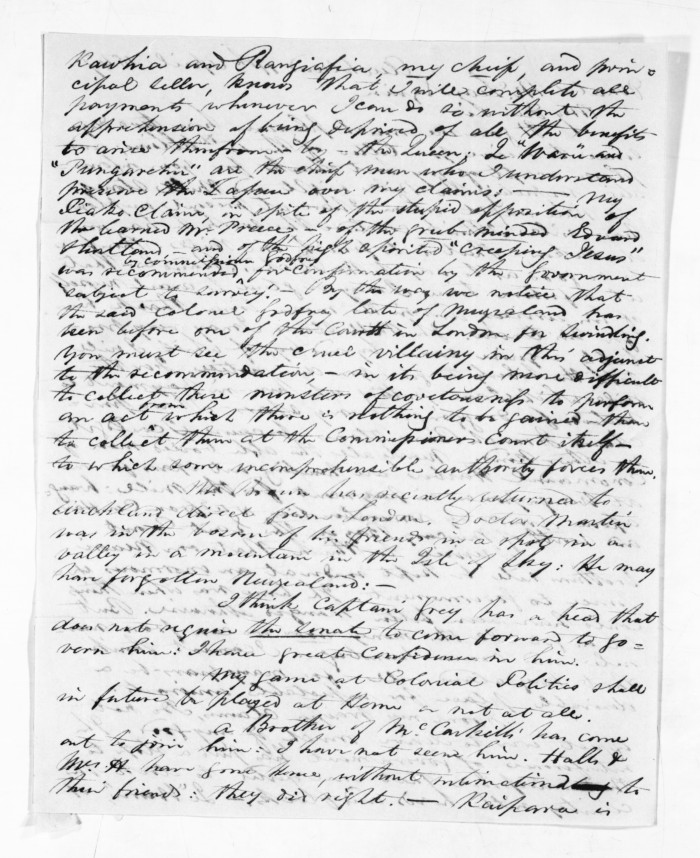 Kawhia and Rangiatia, my chief, and prin=
cipal seller, knows that I will complete all
payments whenever I can do so without the
apprehension of being deprived of all the benefits
to arise therefrom – by – the Queen: Te "Waru" and
"Pungarehu" are the chief men who I understand
preserve the over my claims: — My
Piako Claim, in spite of the stupid opposition of
the learned Mr. Preece – of the grub minded Edward
Shortland – and of the high spirited "Creeping Jesus"
by Commissioner Godfrey
was recommended for confirmation by the government
"subject to survey". – By the way we notice that
the said Colonel Godfrey late of Newzealand has
been before one of the Courts in London for swindling.
You must see the cruel villainy in this adjunct
to the recommendation, – in its being more difficult
to collect these monsters of covetousness to perform
an act from which there is nothing to be gained – than
to collect them at the Commissioners Court itself –
to which some incomprehensible authority forces them.
Brown has recently returned to
Auckland direct from London. Doctor Martin
was in the bosom of his friends in a spot in a
valley in a mountain in the Isle of Sky: He may
have forgotten Newzealand: –
I think Captain Grey has a head that
does not require the senate to come forward to go=
vern him: I have great Confidence in him.
My game at Colonial Politics shall
in future be played at Home or not at all.
A Brother of McCaskill's has come
out to join him: I have not seen him. Halls &
Mrs H. have gone home, without intimation to
their friends: they did right. — Kaipara is